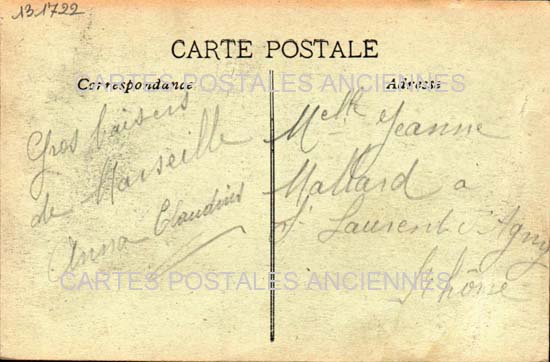 13.1722
CARTE POSTALE
CARTES POSTALES ANCIENNES
Correspondance
Adresse
Gros baisers
de Marseille
Anna Claudius
Melle Jeanne
Mallard a
St Laurent d'Agny
Rhône
CARTES POSTALES ANCIENNES